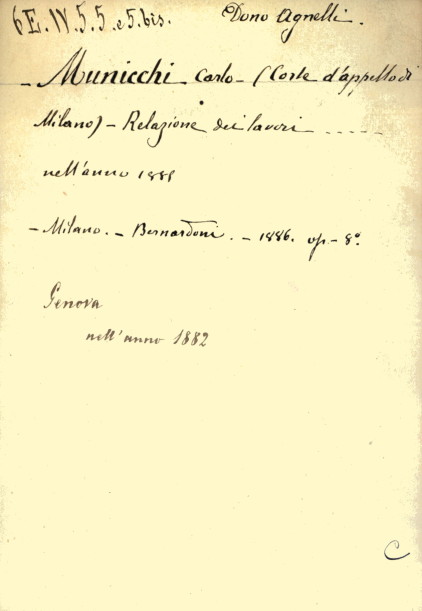 6 E. IV. 5. 5. e 5. bis. Dono Agnelli.
- Municchi Carlo - (Corte d'appello di
Milano) - Relazione dei lavori .....
nell'anno 1885
- Milano. - Bernardoni. - 1886. op. - 8°.
Genova
nell'anno 1882
C